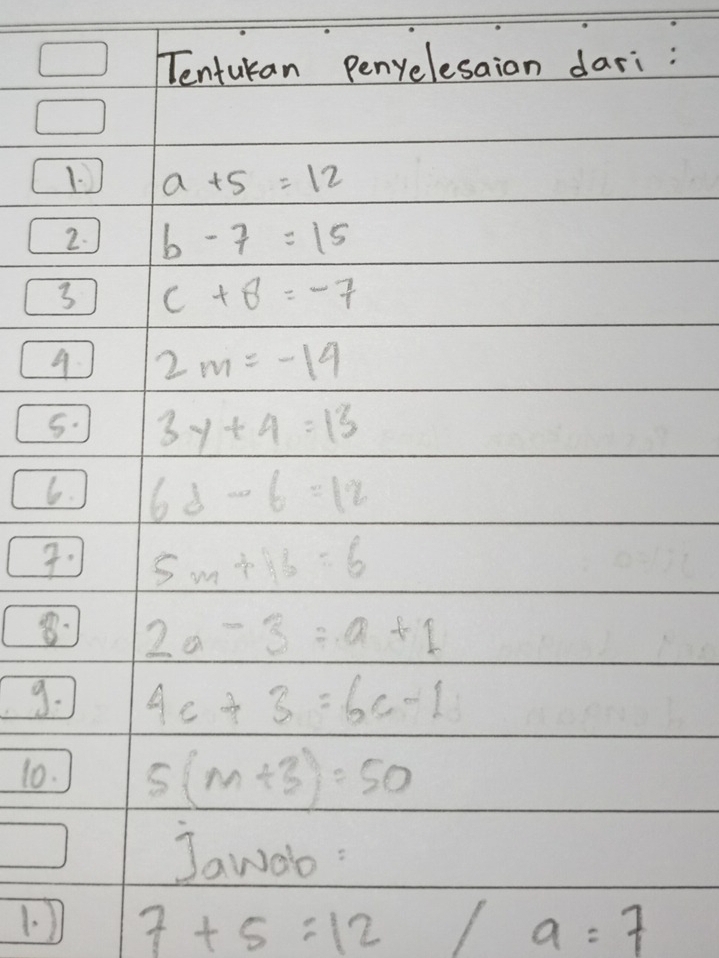 Tentukan Penyelesaian dari :
1.) a + 5 = 12
2. b - 7 = 15
3 c + 8 = -7
4. 2m = -14
5. 3y + 4 = 13
6. 6d - 6 = 12
7. 5m + 16 = 6
8. 2a - 3 = a + 1
9. 4c + 3 = 6c - 1
10. 5(m+3) = 50
Jawab :
1.) 7 + 5 = 12 / a = 7